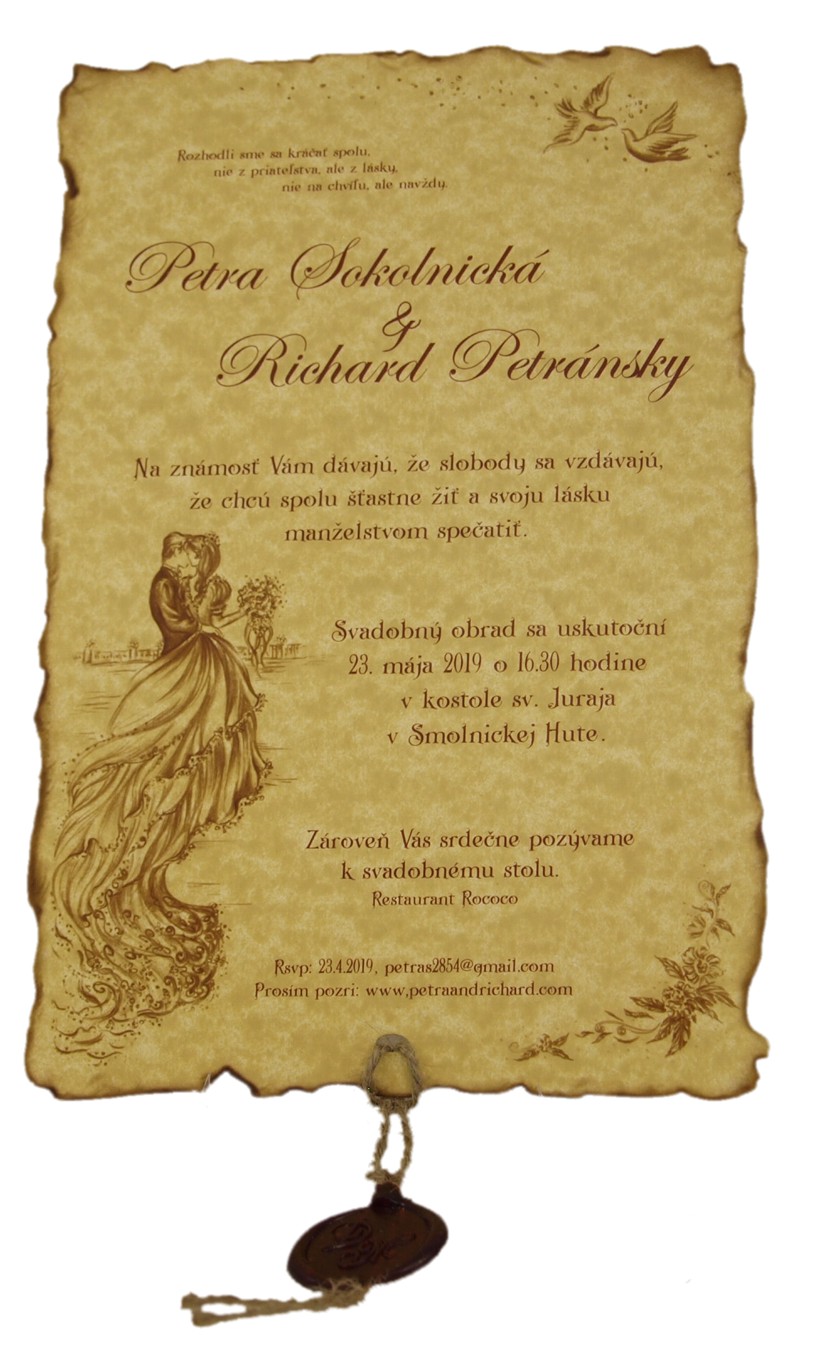 Rozhodli sme sa kráčať spolu,
nie z priateľstva, ale z lásky,
nie na chvíľu, ale navždy.
Petra Sokolnická
&
Richard Petránsky
Na známosť Vám dávajú, že slobody sa vzdávajú,
že chcú spolu šťastne žiť a svoju lásku
manželstvom spečatiť.
Svadobný obrad sa uskutoční
23. mája 2019 o 16.30 hodine
v kostole sv. Juraja
v Smolnickej Hute.
Zároveň Vás srdečne pozývame
k svadobnému stolu.
Restaurant Rococo
Rsvp: 23.4.2019, petras2854@gmail.com
Prosím pozri: www,petraandrichard.com